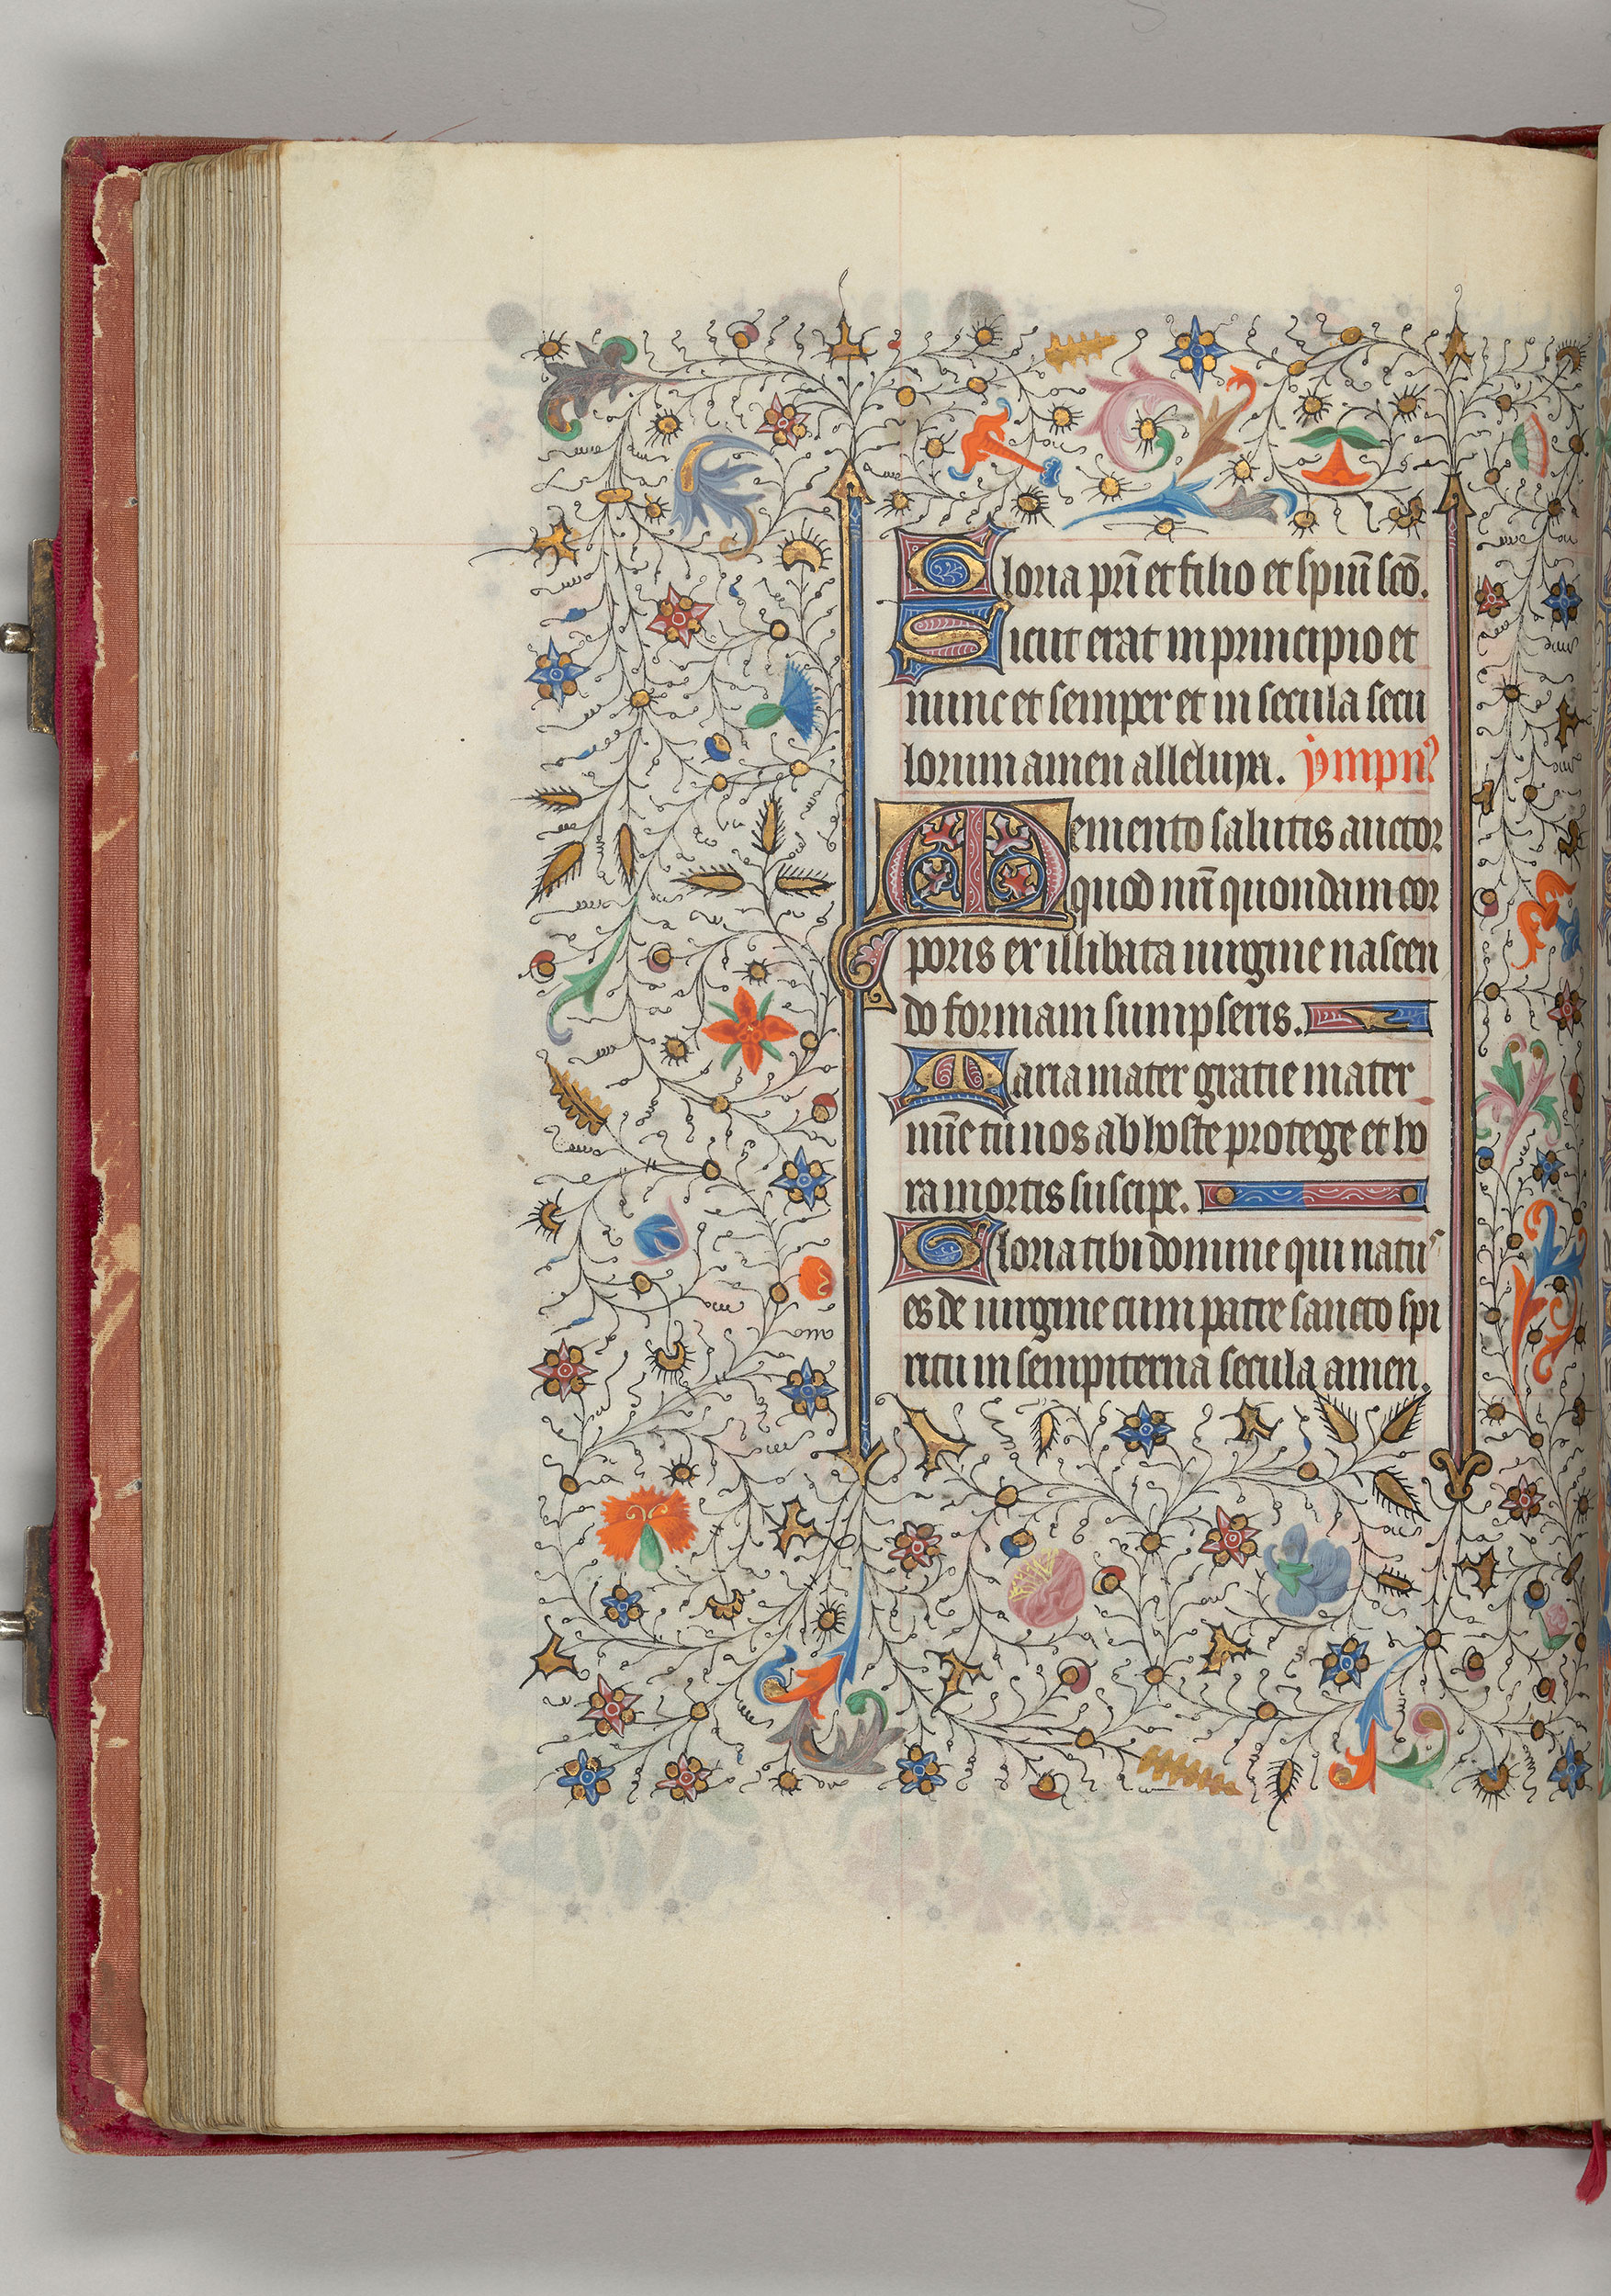 Gloria pr̄i et filio et spiūi scō.
Sicut erat in principio et
nunc et semper et in secula secu
lorum amen alleluya. ympnꝰ
Memento salutis auctor
quod nr̄i quondam cor
poris ex illibata uirgine nascen
do formam sumpseris.
Maria mater gratie mater
mīe tu nos ab hoste protege et ho
ra mortis suscipe.
Gloria tibi domine qui natuˢ
es de uirgine cum patre sancto spi
ritu in sempiterna secula amen.